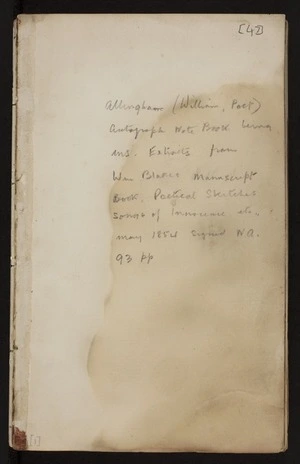 [42]
Allingham (William, Poet)
Autograph Note Book being
MS. Extracts from
Wm Blake's Manuscript
Book, Poetical Sketches
Songs of Innocence etc.
May 1854 signed W.A.
93 pp
[1]